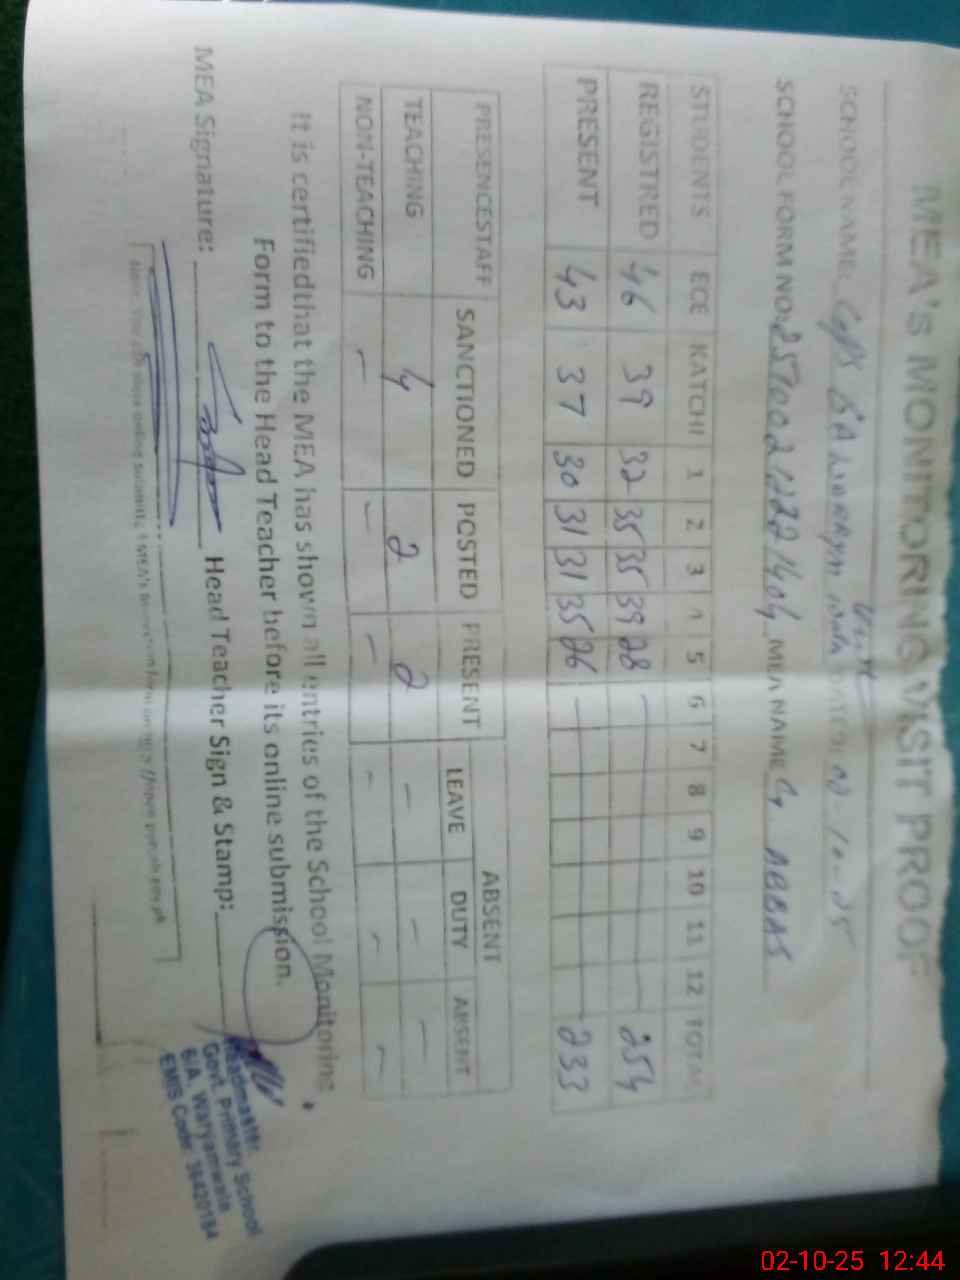 MEA's MONITORING VISIT PROOF
SCHOOL NAME: GPS 6/A Waryam DATED: 02-10-25
SCHOOL FORM NO: MEA NAME G. ABBAS
STUDENTS ECE KATCHI 1 2 3 4 5 6 7 8 9 10 11 12 TOTAL
REGISTRED 46 39 32 35 35 39 28 — 254
PRESENT 43 37 30 31 31 35 26 — 233
PRESENCESTAFF SANCTIONED POSTED PRESENT ABSENT
LEAVE DUTY ABSENT
TEACHING 4 2 2 – – –
NON-TEACHING – – – – – –
It is certifiedthat the MEA has shown all entries of the School Monitoring
Form to the Head Teacher before its online submission.
MEA Signature: Head Teacher Sign & Stamp:
Headmaster
Govt. Primary School
6/A. Waryamwala
EMIS Code: 36420184
02-10-25 12:44